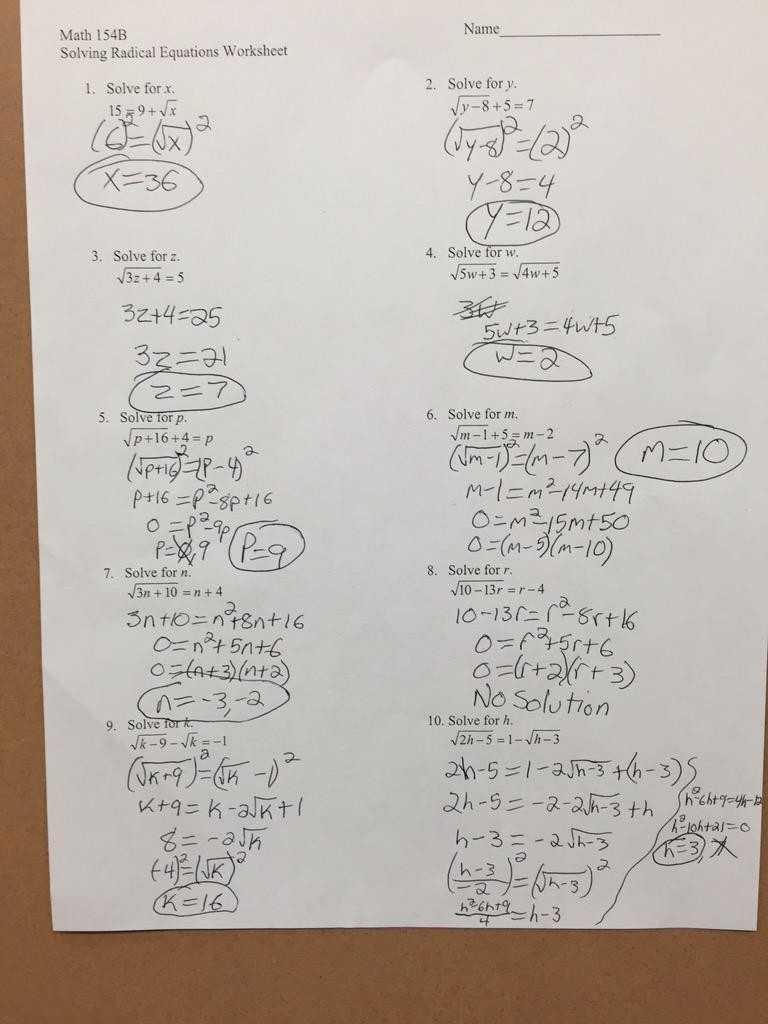 Math 154B
Name
Solving Radical Equations Worksheet
1. Solve for x.
15 = 9 + √x
(6)² = (√x)²
x = 36
2. Solve for y.
√(y−8) + 5 = 7
(√(y−8))² = (2)²
y−8 = 4
y = 12
3. Solve for z.
√(3z+4) = 5
3z+4 = 25
3z = 21
z = 7
4. Solve for w.
√(5w+3) = √(4w+5)
5w+3 = 4w+5
w = 2
5. Solve for p.
√(p+16) + 4 = p
(√(p+16))² = (p−4)²
p+16 = p²−8p+16
0 = p²−9p
p = 0, 9
p = 9
6. Solve for m.
√(m−1) + 5 = m−2
(√(m−1))² = (m−7)²
m = 10
m−1 = m²−14m+49
0 = m²−15m+50
0 = (m−5)(m−10)
7. Solve for n.
√(3n+10) = n+4
3n+10 = n²+8n+16
0 = n²+5n+6
0 = (n+3)(n+2)
n = −3, −2
8. Solve for r.
√(10−13r) = r−4
10−13r = r²−8r+16
0 = r²+5r+6
0 = (r+2)(r+3)
No Solution
9. Solve for k.
√(k−9) − √k = −1
(√(k+9))² = (√k −1)²
k+9 = k−2√k+1
8 = −2√k
(−4)² = (√k)²
k = 16
10. Solve for h.
√(2h−5) = 1−√(h−3)
2h−5 = 1−2√(h−3)+(h−3)
2h−5 = −2−2√(h−3)+h
h−3 = −2√(h−3)
((h−3)/−2)² = (√(h−3))²
(h²−6h+9)/4 = h−3
h²−6h+9=4h−12
h²−10h+21=0
h=3,